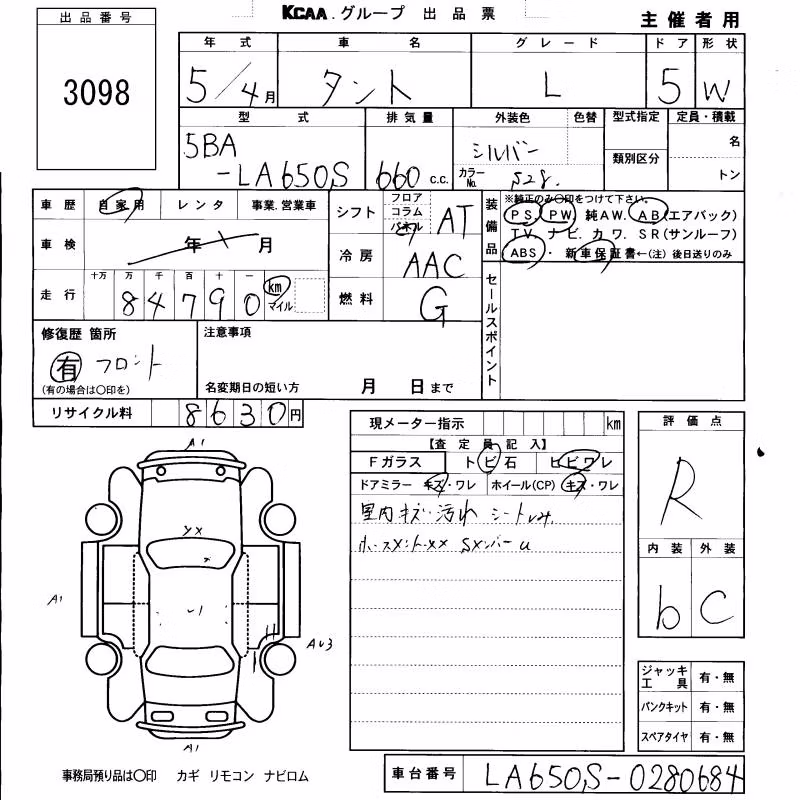 出品番号
3098
KCAA.グループ 出品票
主催者用
年式 車名 グレード ドア 形状
5/4月 タント L 5 W
型式 排気量 外装色 色替 型式指定 定員・積載
5BA
-LA650S 660 c.c. シルバー
カラーNo. S28.
類別区分
名
トン
車歴 自家用 レンタ 事業.営業車
車検 年 月
走行 十万 万 千 百 十 一
84790 km マイル
シフト フロア コラム パネル AT
冷房 AAC
燃料 G
装備品
※純正のみ○印をつけて下さい。
PS. PW 純AW. AB(エアバック)
TV. ナビ. カワ. SR(サンルーフ)
ABS・ 新車保証書←(注) 後日送りのみ
セールスポイント
修復歴 箇所
有 フロント
(有の場合は○印を)
注意事項
名変期日の短い方 月 日まで
リサイクル料 8630円
現メーター指示 km
【査定員記入】
Fガラス トビ石 ヒビワレ
ドアミラー キズ・ワレ ホイール(CP) キズ・ワレ
室内キズ・汚れ シートしみ.
評価点
R
内装 外装
b C
A1
YX
A1
A1
ジャッキ工具 有・無
パンクキット 有・無
スペアタイヤ 有・無
事務局預り品は○印 カギ リモコン ナビロム
車台番号 LA650S-0280684